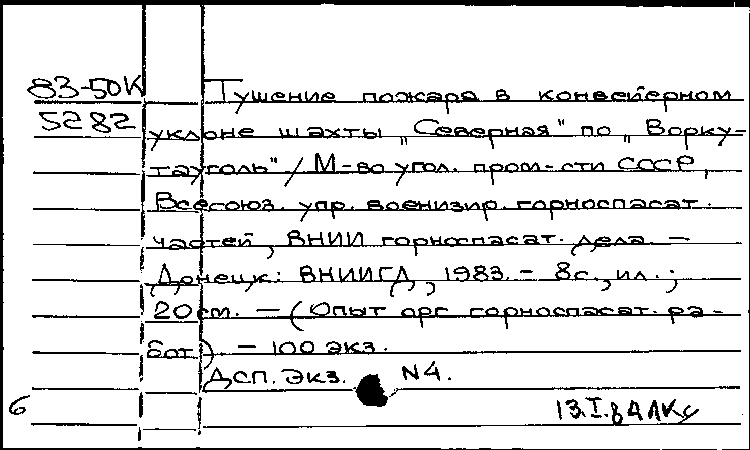 83-50К Тушение пожара в конвейерном
5282 уклоне шахты "Северная" по "Ворку-
тауголь" / М-во угол. пром-сти СССР,
Всесоюз. упр. военизир. горноспасат.
частей, ВНИИ горноспасат. дела. -
Донецк: ВНИИГД, 1983. - 8с., ил.;
20см. - (Опыт орг. горноспасат. ра-
бот) - 100 экз.
ДСП. Экз. N4.
6 13.I.84